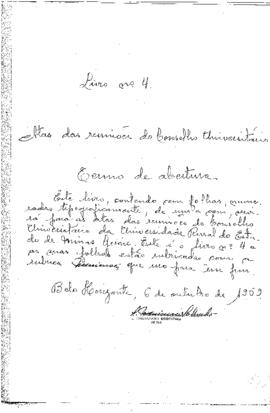 Livro nº 4.
Atas das reuniões do Conselho Universitário
Termo de abertura.
Este livro, contendo cem folhas, nume-
radas tipograficamente, de um a cem, servi-
rá para as atas das reuniões do Conselho
Universitário da Universidade Rural do Esta-
do de Minas Gerais. Este é o livro nº 4 e
as suas folhas estão rubricadas com a
rubrica que uso para êsse fim.
Belo Horizonte, 6 de outubro de 1959